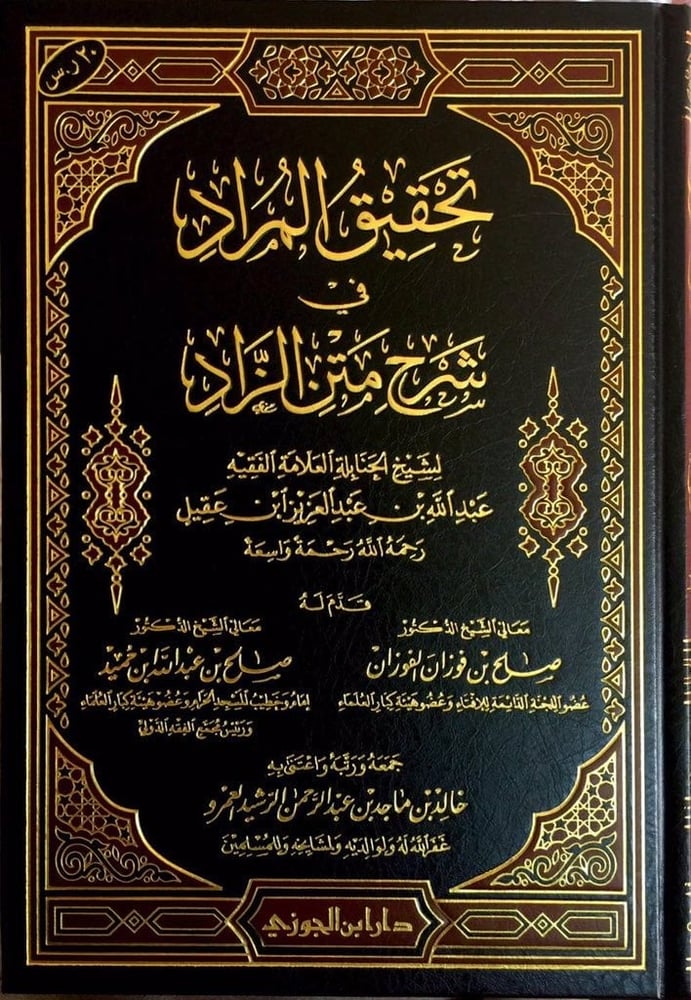 ٢٠ ر.س
تَحْقِيقُ المُرَادِ
في
شَرْحِ مَتْنِ الزَّادِ
لشيخ الحنابلة العلامة الفقيه
عبد الله بن عبد العزيز ابن عقيل
رحمه الله رحمة واسعة
قدم له
معالي الشيخ الدكتور
صالح بن فوزان الفوزان
عضو اللجنة الدائمة للإفتاء وعضو هيئة كبار العلماء
معالي الشيخ الدكتور
صالح بن عبد الله ابن حميد
إمام وخطيب المسجد الحرام وعضو هيئة كبار العلماء
ورئيس مجمع الفقه الدولي
جمعه ورتبه واعتنى به
خالد بن ماجد بن عبد الرحمن الرشيد العمرو
غفر الله له ولوالديه ولمشايخه وللمسلمين
دار ابن الجوزي